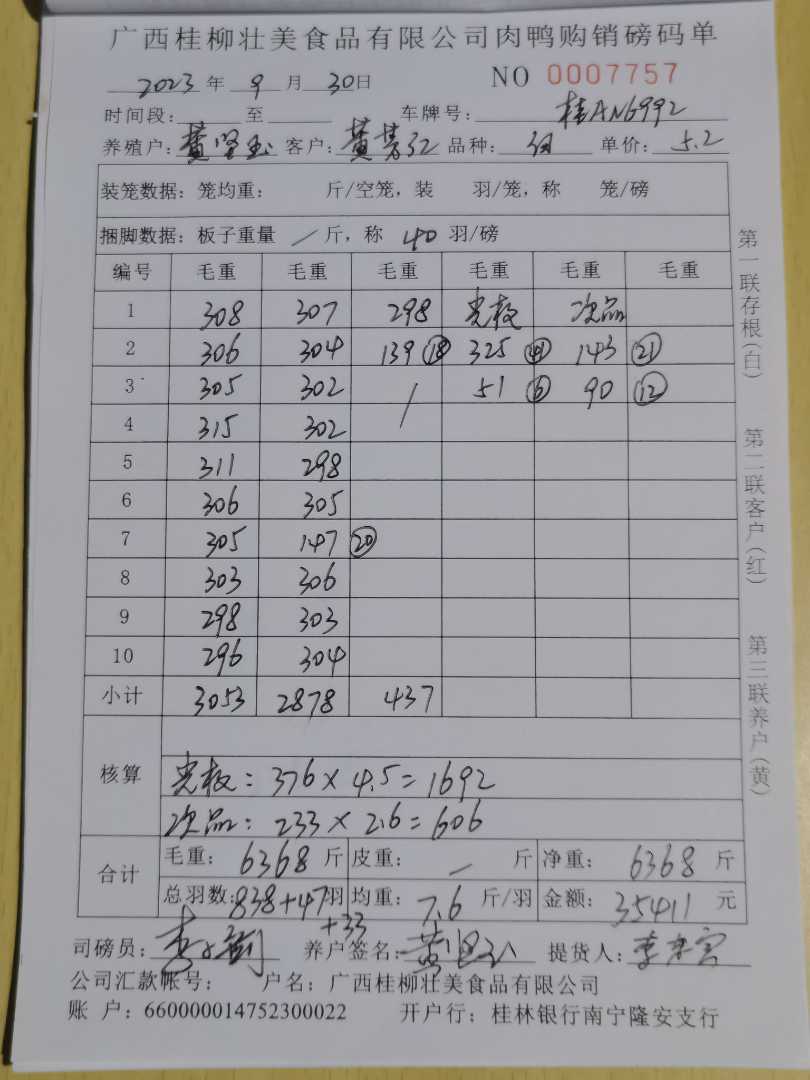 广西桂柳壮美食品有限公司肉鸭购销磅码单
2023年 9月 30日 NO 0007757
时间段: 至 车牌号: 桂AN6992
养殖户: 黄坚 客户: 黄 品种: 单价: 5.2
装笼数据: 笼均重: 斤/空笼, 装 羽/笼, 称 笼/磅
捆脚数据: 板子重量 / 斤, 称 40 羽/磅
编号 毛重 毛重 毛重 毛重 毛重 毛重
1 308 307 298 光板 次品
2 306 304 139 ⑱ 325 ㊶ 143 ㉑
3 305 302 / 51 ⑥ 90 ⑫
4 315 302
5 311 298
6 306 305
7 305 147 ⑳
8 303 306
9 298 303
10 296 304
小计 3053 2878 437
核算
光板: 376 × 4.5 = 1692
次品: 233 × 2.6 = 606
合计
毛重: 6368 斤 皮重: / 斤 净重: 6368 斤
总羽数: 838+47羽 均重: 7.6 斤/羽 金额: 35411 元
+33
司磅员: 李 养户签名: 黄 提货人: 李
公司汇款帐号: 户名: 广西桂柳壮美食品有限公司
账 户: 660000014752300022 开户行: 桂林银行南宁隆安支行
第一联存根(白) 第二联客户(红) 第三联养户(黄)